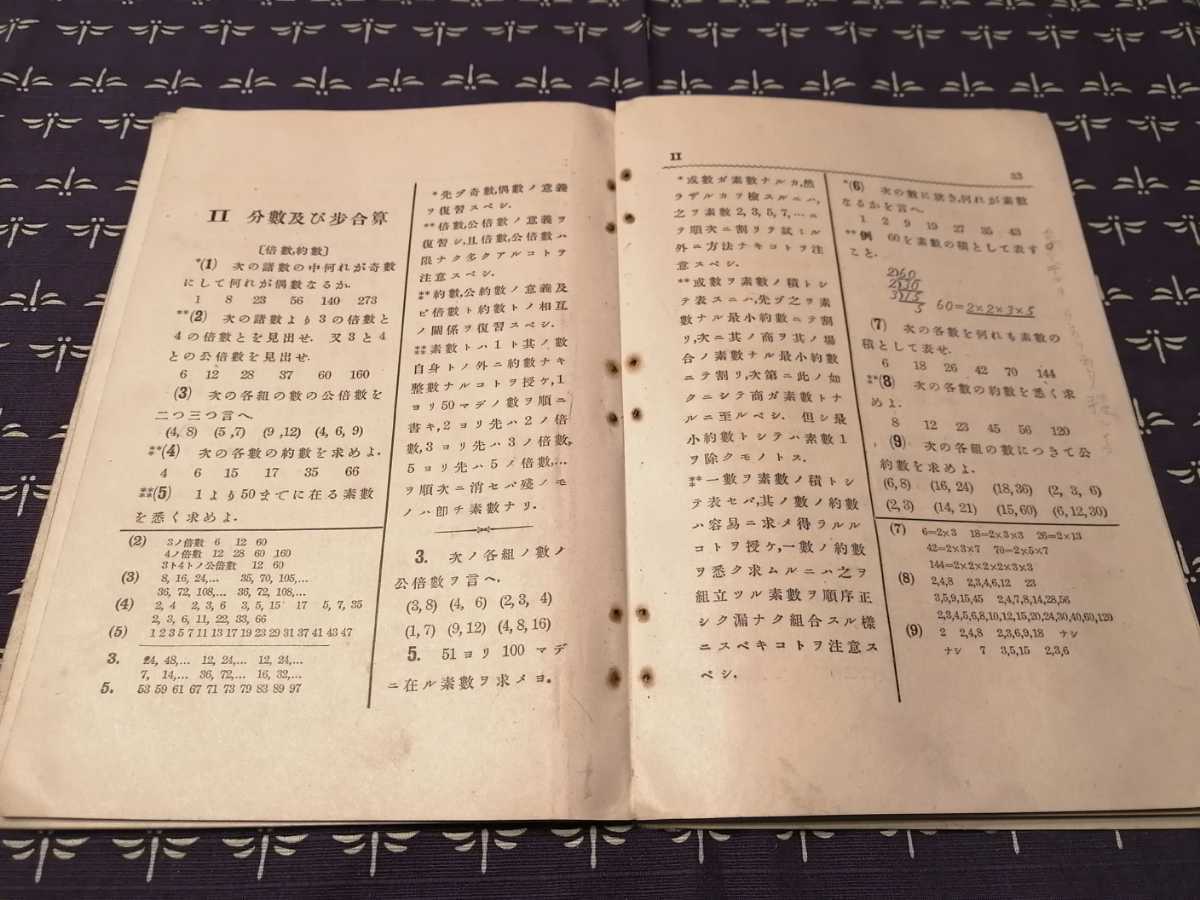 II 分數及び步合算
〔倍數,約數〕
*(1) 次の諸數の中何れが奇數
にして何れが偶數なるか.
1 8 23 56 140 273
**(2) 次の諸數より3の倍數と
4の倍數とを見出せ. 又3と4
との公倍數を見出せ.
6 12 28 37 60 160
(3) 次の各組の數の公倍數を
二つ三つ言へ.
(4, 8) (5 ,7) (9 ,12) (4, 6, 9)
**(4) 次の各數の約數を求めよ.
4 6 15 17 35 66
(5) 1より50までに在る素數
を悉く求めよ.
(2) 3ノ倍數 6 12 60
4ノ倍數 12 28 60 160
3ト4トノ公倍數 12 60
(3) 8, 16, 24,… 35, 70, 105,…
36, 72, 108,… 36, 72, 108,…
(4) 2, 4 2, 3, 6 3, 5, 15 17 5, 7, 35
2, 3, 6, 11, 22, 33, 66
(5) 1 2 3 5 7 11 13 17 19 23 29 31 37 41 43 47
3. 24, 48,… 12, 24,… 12, 24,…
7, 14,… 36, 72,… 16, 32,…
5. 53 59 61 67 71 73 79 83 89 97
*先ヅ奇數,偶數ノ意義
ヲ復習スベシ.
**倍數,公倍數ノ意義ヲ
復習シ,且倍數,公倍數ハ
限ナク多クアルコトヲ
注意スベシ.
**約數,公約數ノ意義及
ビ倍數ト約數トノ相互
ノ關係ヲ復習スベシ.
素數トハ1ト其ノ數
自身トノ外ニ約數ナキ
整數ナルコトヲ授ケ,1
ヨリ50マデノ數ヲ順ニ
書キ,2ヨリ先ハ2ノ倍
數,3ヨリ先ハ3ノ倍數,
5ヨリ先ハ5ノ倍數,…
ヲ順次ニ消セバ殘ノモ
ノハ卽チ素數ナリ.
3. 次ノ各組ノ數ノ
公倍數ヲ言ヘ.
(3, 8) (4, 6) (2, 3, 4)
(1, 7) (9, 12) (4, 8, 16)
5. 51ヨリ100マデ
ニ在ル素數ヲ求メヨ.
II
33
*或數ガ素數ナルカ,然
ラザルカヲ檢スルニハ,
之ヲ素數2, 3, 5, 7,…ニ
テ順次ニ割リテ試ミル
外ニ方法ナキコトヲ注
意スベシ.
**或數ヲ素數ノ積トシ
テ表スニハ,先ヅ之ヲ素
數ナル最小約數ニテ割
リ,次ニ其ノ商ヲ其ノ場
合ノ素數ナル最小約數
ニテ割リ,次第ニ此ノ如
クニシテ商ガ素數トナ
ルニ至ルベシ. 但シ最
小約數トシテハ素數1
ヲ除クモノトス.
**一數ヲ素數ノ積トシ
テ表セバ,其ノ數ノ約數
ハ容易ニ求メ得ラルル
コトヲ授ケ,一數ノ約數
ヲ悉ク求ムルニハ之ヲ
組立ツル素數ヲ順序正
シク漏ナク組合スル樣
ニスベキコトヲ注意ス
ベシ.
*(6) 次の數に就き,何れが素數
なるかを言へ.
1 2 9 19 27 35 43
**例 60を素數の積として表す
こと.
2)60
2)30
3)15
5 60=2×2×3×5
(7) 次の各數を何れも素數の
積として表せ.
6 18 26 42 70 144
**(8) 次の各數の約數を悉く求
めよ.
8 12 23 45 56 120
(9) 次の各組の數につきて公
約數を求めよ.
(6, 8) (16, 24) (18, 36) (2, 3, 6)
(2, 3) (14, 21) (15, 60) (6, 12, 30)
(7) 6=2×3 18=2×3×3 26=2×13
42=2×3×7 70=2×5×7
144=2×2×2×2×3×3
(8) 2,4,8 2,3,4,6,12 23
3,5,9,15,45 2,4,7,8,14,28,56
2,3,4,5,6,8,10,12,15,20,24,30,40,60,120
(9) 2 2,4,8 2,3,6,9,18 ナシ
ナシ 7 3,5,15 2,3,6